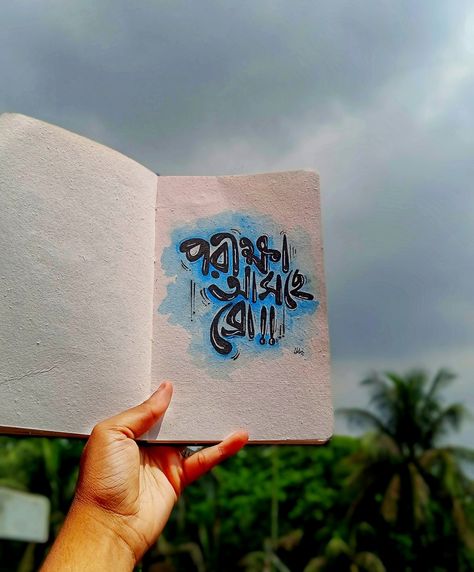 পরীক্ষা
আসছে
ব্রো!!